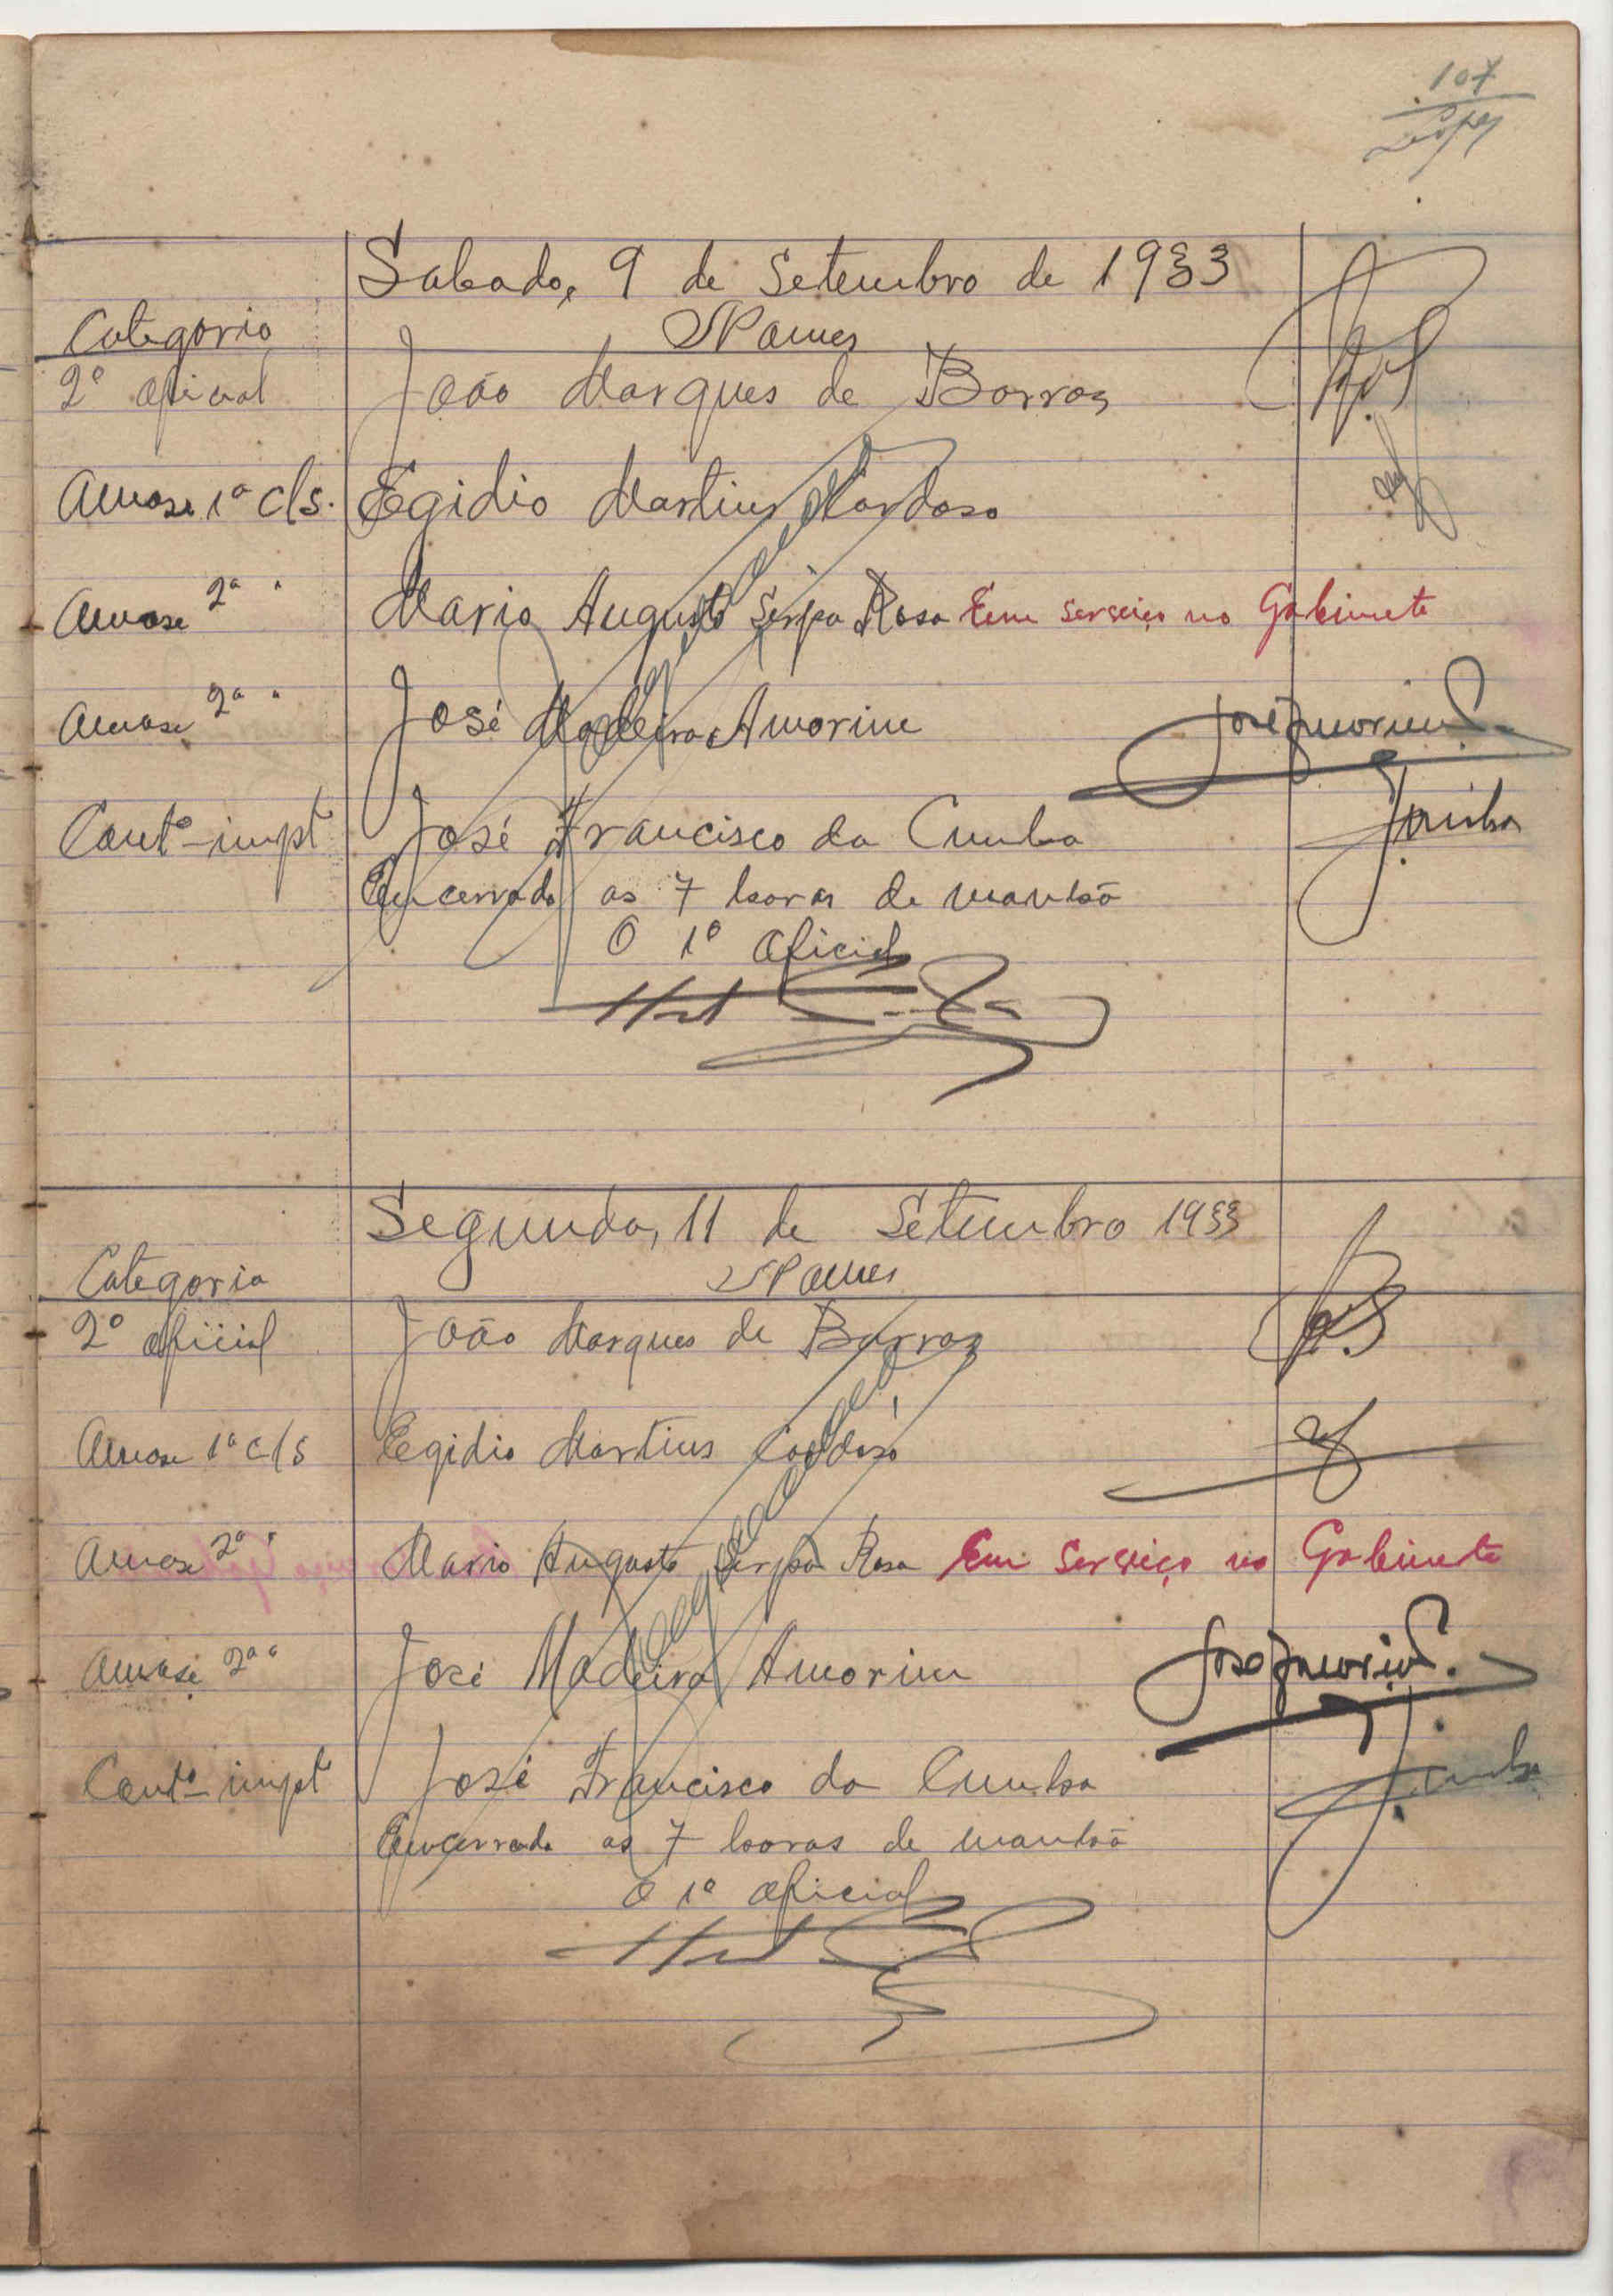 107
Sabado, 9 de Setembro de 1933
Categoria Nomes
2º Oficial João Marques de Barros
Amase 1ª cls. Egidio Martins Cardoso
Amase 2ª " Mario Augusto Serpa Rosa Em serviço no Gabinete
Amase 2ª " José Madeira Amorim José Amorim
Contº impt José Francisco da Cunha Cunha
Encerrado as 7 horas da manhã
O 1º Oficial
Segunda, 11 de Setembro 1933
Categoria Nomes
2º oficial João Marques de Barros
Amase 1ª cls Egidio Martins Cardoso
Amase 2ª " Mario Augusto Serpa Rosa Em serviço no Gabinete
Amase 2ª " José Madeira Amorim José Amorim
Contº impt José Francisco da Cunha Cunha
Encerrado as 7 horas de manhã
O 1º oficial